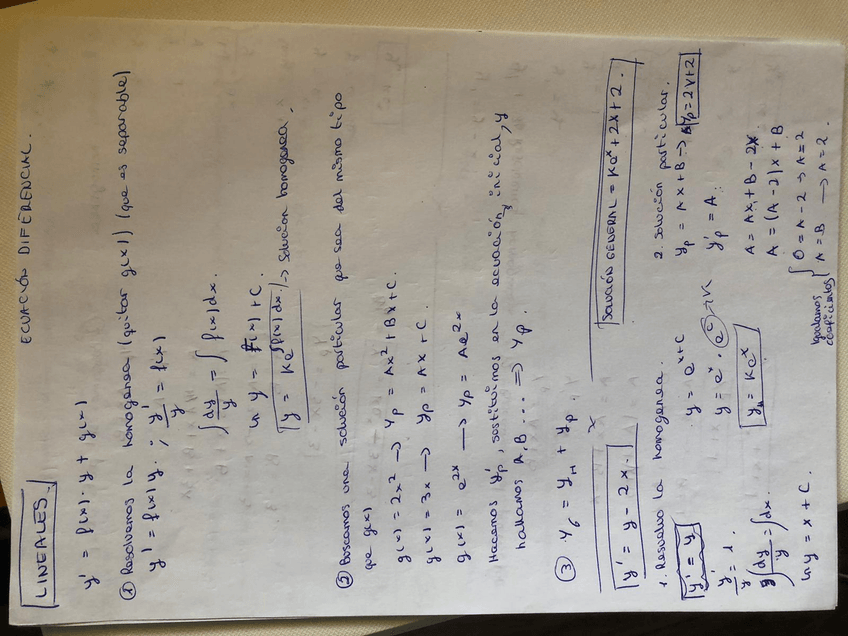 ECUACIÓN DIFERENCIAL.
LINEALES.
y' = f(x)·y + g(x)
① Resolvemos la homogenea (quitar g(x)) (que es separable)
y' = f(x) y. ; y'/y = f(x)
∫ dy/y = ∫ f(x) dx.
ln y = F(x) + C.
y = K e^∫f(x)dx. → solución homogenea.
② Buscamos una solución particular que sea del mismo tipo
que g(x)
g(x) = 2x² → yp = Ax² + Bx + C.
g(x) = 3x → yp = Ax + C.
g(x) = e^2x → yp = Ae^2x
Hacemos y'p, sustituimos en la ecuación inicial, y
hallamos A, B ... ⇒ yp.
③ yG = yH + yp.
y' = y - 2x.
SOLUCIÓN GENERAL = Ke^x + 2x + 2.
1. Resuelvo la homogenea.
y' = y
y'/y = 1.
∫ dy/y = ∫ dx.
ln y = x + C.
y = e^x+C
y = e^x · e^C → K
yH = Ke^x
2. solución particular.
yp = Ax + B → yp = 2x+2
y'p = A.
A = Ax + B - 2x.
A = (A - 2)x + B
Igualamos coeficientes { 0 = A - 2 → A = 2
A = B → A = 2.